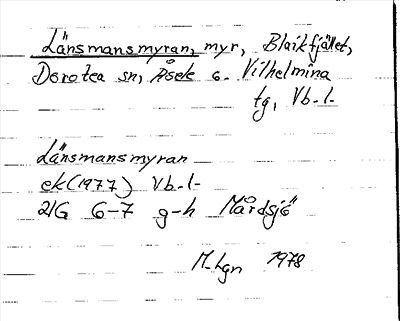 Länsmansmyran, myr, Blaikfjället,
Dorotea sn, Åsele o. Vilhelmina
tg, Vb.l.
Länsmansmyran
ek (1977) Vb.l.
21G 6-7 g-h Mårdsjö
M-Lgn 1978